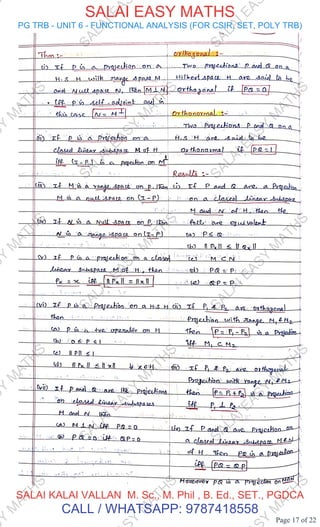 SALAI EASY MATHS
PG TRB - UNIT 6 - FUNCTIONAL ANALYSIS (FOR CSIR, SET, POLY TRB)
Thm:-
(i) If P is a projection on a
H.S H with range space M
and Null space N, then M⊥N
iff P is self-adjoint and in
this case N = M⊥
(ii) If P is a Projection on a
closed linear subspace M of H
iff (I-P) is a projection on M⊥
(iii) If M is a range space on P, then
M is a null space on (I-P)
(iv) If N is a Null space on P, then
N is a range space on (I-P)
(v) If P is a projection on a closed
linear subspace M of H, then
Px = x iff ||Px|| = ||x||
(vi) If P is a Projection on a H.S H
then
(a) P is +ve operator on H
(b) 0 ≤ P ≤ I
(c) ||P|| ≤ 1
(d) ||Px|| ≤ ||x|| ∀ x∈H
(vii) If P and Q are the projections
on closed linear subspaces
M and N then
(a) M⊥N iff PQ=0
(b) PQ=0 iff QP=0
orthogonal :-
Two projections P and Q on a
Hilbert space H are said to be
orthogonal if PQ=0
orthonormal :-
Two Projections P and Q on a
H.S H are said to be
orthonormal if PQ=1
Results :-
(i) If P and Q are a Projection
on a closed linear subspace
M and N of H, then the
foll: are equivalent
(a) P ≤ Q
(b) ||Px|| ≤ ||Qx||
(c) M ⊂ N
(d) PQ = P
(e) QP = P
(ii) If P₁ & P₂ are orthogonal
Projection with range M₁ & M₂
then P = P₁-P₂ is a Projection
iff M₁ ⊂ M₂
(iii) If P₁ & P₂ are orthogonal
Projection with range M₁ & M₂
then P = P₁+P₂ is a Projection
iff P₁ ⊥ P₂
(iv) If P and Q are Projection on
a closed linear subspace M & N
of H Then PQ is a Projection
iff PQ = QP
Moreover PQ is a Projection on M∩N
SALAI KALAI VALLAN M. Sc., M. Phil , B. Ed., SET., PGDCA
CALL / WHATSAPP: 9787418558
Page 17 of 22